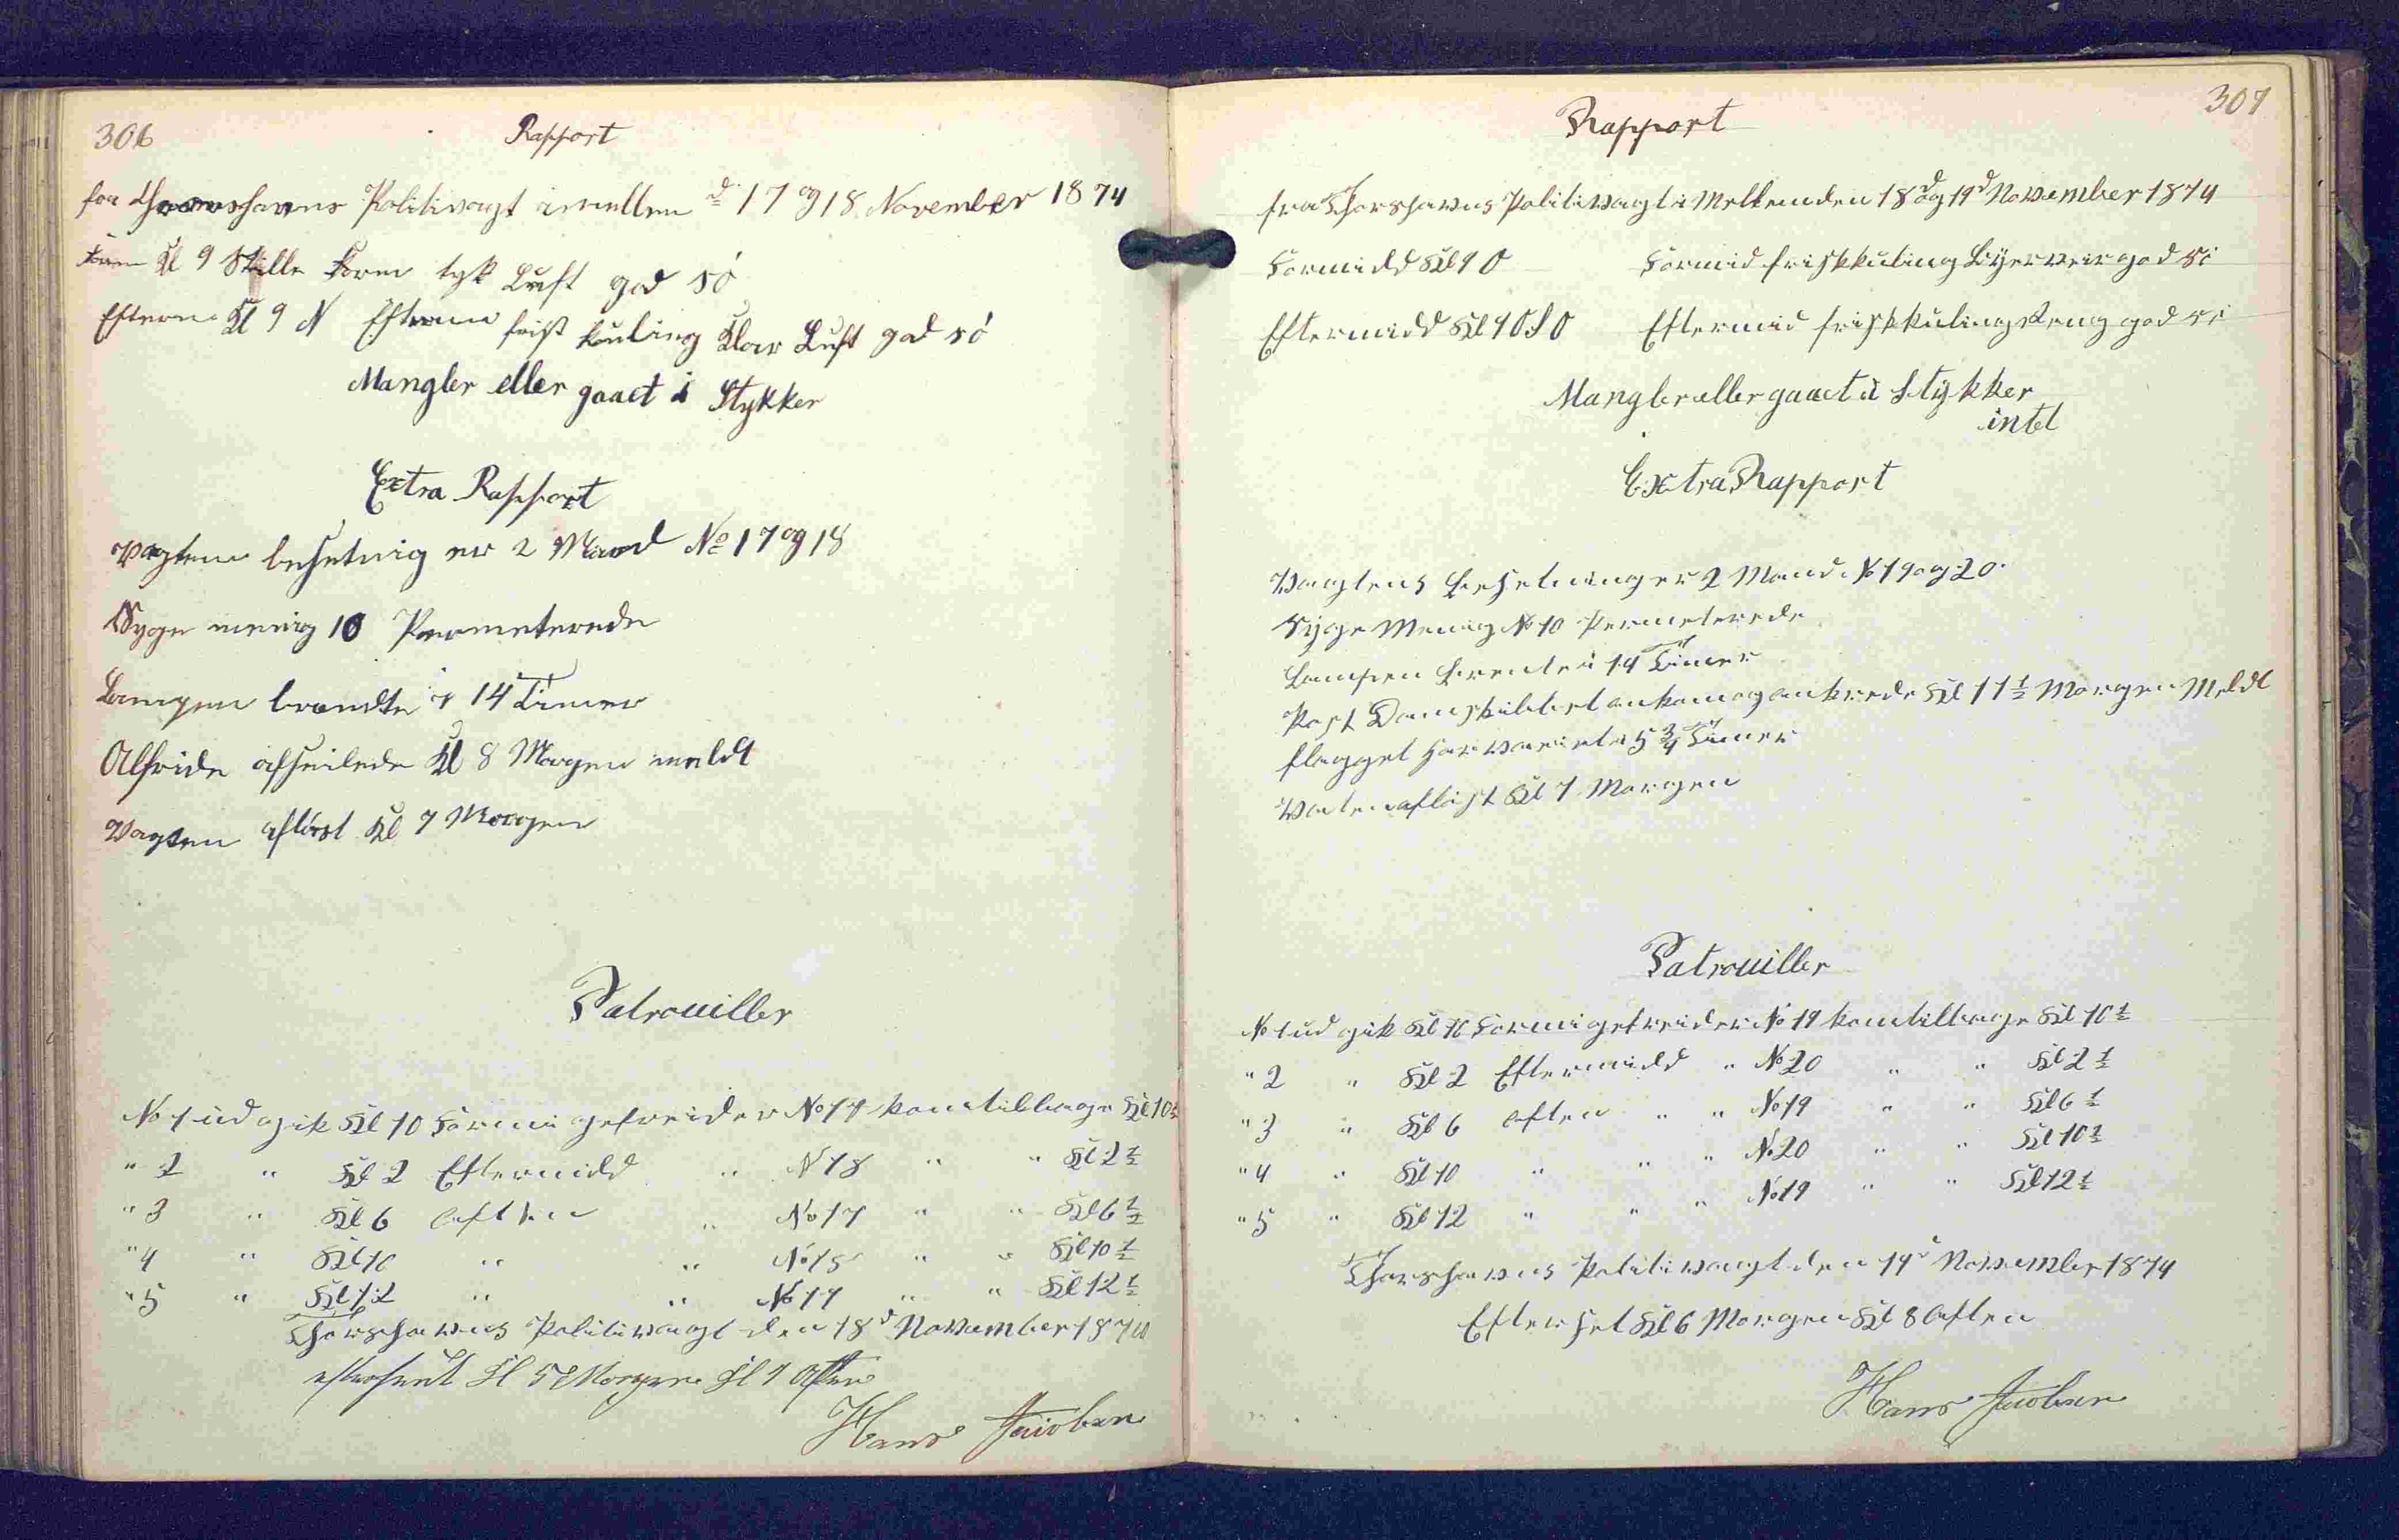 306
Rapport
fra Thorshavns Politivagt imellem d 17 og 18 November 1874
Form Kl 9 Stille Form tyk Luft god sö
Efterm Kl 9 N Efterm frisk kuling Klar Luft god sö
Mangler eller gaaet i Stykker
Extra Rapport
Vagtens besetning er 2 Mand No 17 og 18
Syge menig 10 Permeterede
Lampen brændte i 14 Timer
Alfride afseilede Kl 8 Morgen meldt
Vagten aflöst Kl 7 Morgen
Patrouiller
No 1 udgik Kl 10 Formi gefreider No 17 kom tilbage Kl 10½
" 2 " Kl 2 Eftermidd " N 18 " " Kl 2½
" 3 " Kl 6 Aften " No 17 " " Kl 6½
" 4 " Kl 10 " " No 18 " " Kl 10½
" 5 " Kl 12 " " No 17 " " Kl 12½
Thorshavns Politivagt den 18d November 1874
efterseet Kl 5 Morgen Kl 7 Aften
Hans Jacobsen
307
Rapport
fra Thorshavns Politivagt i Mellem den 18d og 19d November 1874
Formidd Kl 9 O Formid frisk kuling Byerveir god si
Eftermidd Kl 9 OSO Eftermid frisk kuling Reng god si
Mangler eller gaaet i Stykker
intel
Extra Rapport
Vagtens besetning er 2 Mand No 19 og 20.
Syge Menig No 10 Permeterede
Lampen brente i 14 Timer
Post Dampskibbet ankom og ankrede Kl 11½ Morgen Meldt
flagget har vaaiet i 5¾ Timer
Vaten aflöst Kl 7 Morgen
Patrouiller
No 1 udgik Kl 10 Formi gefreider No 19 kom tilbage Kl 10½
" 2 " Kl 2 Eftermidd " No 20 " " Kl 2½
" 3 " Kl 6 Aften " " No 19 " " Kl 6½
" 4 " Kl 10 " " " No 20 " " Kl 10½
" 5 " Kl 12 " " " No 19 " " Kl 12½
Thorshavns Politivagt den 19d November 1874
Efterset Kl 6 Morgen Kl 8 Aften
Hans Jacobsen